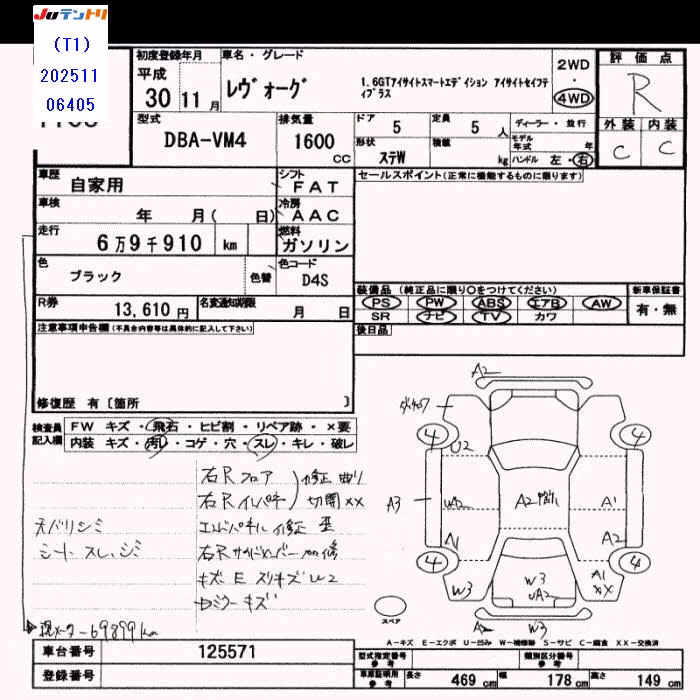 JUテントリ
(T1)
202511
06405
初度登録年月
平成
30 11月
車名・グレード
レヴォーグ
1.6GTアイサイトスマートエディション アイサイトセイフティプラス
2WD
・
4WD
評価点
R
外装 内装
C C
型式
DBA-VM4
排気量
1600
CC
ドア 5
定員 5 人
ディーラー・並行
モデル年式 年
形状 ステW
積載 kg
ハンドル 左・右
車歴
自家用
シフト
FAT
車検
年 月( 日)
冷房
AAC
走行
6万9千910 km
燃料
ガソリン
色
ブラック
色替
色コード
D4S
R券
13,610円
名変通知期限
月 日
セールスポイント(正常に機能するものに限ります)
装備品(純正品に限り○をつけてください)
PS PW ABS エアB AW
SR ナビ TV カワ
新車保証書
有・無
後日品
注意事項申告欄(不具合内容等は具体的に記入して下さい)
修復歴 有〔箇所 〕
検査員記入欄
FW キズ・飛石・ヒビ割・リペア跡・×要
内装 キズ・汚レ・コゲ・穴・スレ・キレ・破レ
右Rフロア
右Rインパネ
修正 曲り
切開 XX
天バリシミ
シートスレ、シミ
エンドパネル修正 歪
キズ E スリキズ U2
現メーター69899km
A2
4
4
U2
A3
UA2
A2
A1
A1
A2
4
4
W3
W3
UA2
A1
XX
A2
W3
スペア
A-キズ E-エクボ U-凹み W-補修跡 S-サビ C-腐食 XX-交換済
車台番号
125571
登録番号
型式指定番号
参考
類別区分番号
参考
車庫証明用
参考
長さ 469 cm
幅 178 cm
高さ 149 cm